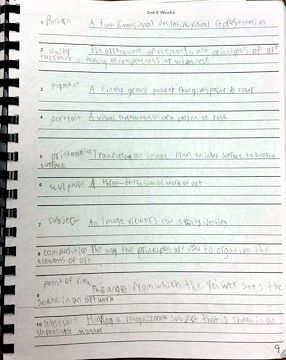 2nd 6 Weeks
1 pattern A two-dimensional decorative visual representation
2 unity The arrangement of elements and principles of art
to create a feeling of completeness or wholeness
3 pigment A finely ground powder that gives paint its color
4 portrait A visual representation of a person at rest
5 printmaking Transfering an image from an inked surface to another
surface
6 sculpture A three-dimensional work of art
7 subject An image viewers can easily identify
8 composition the way the principles are used to organize the
elements of art
9 point of view The angle from which the viewer sees the
scene in an artwork
10 abstract Having a recognizable subject that is shown in an
unrealistic manner
9